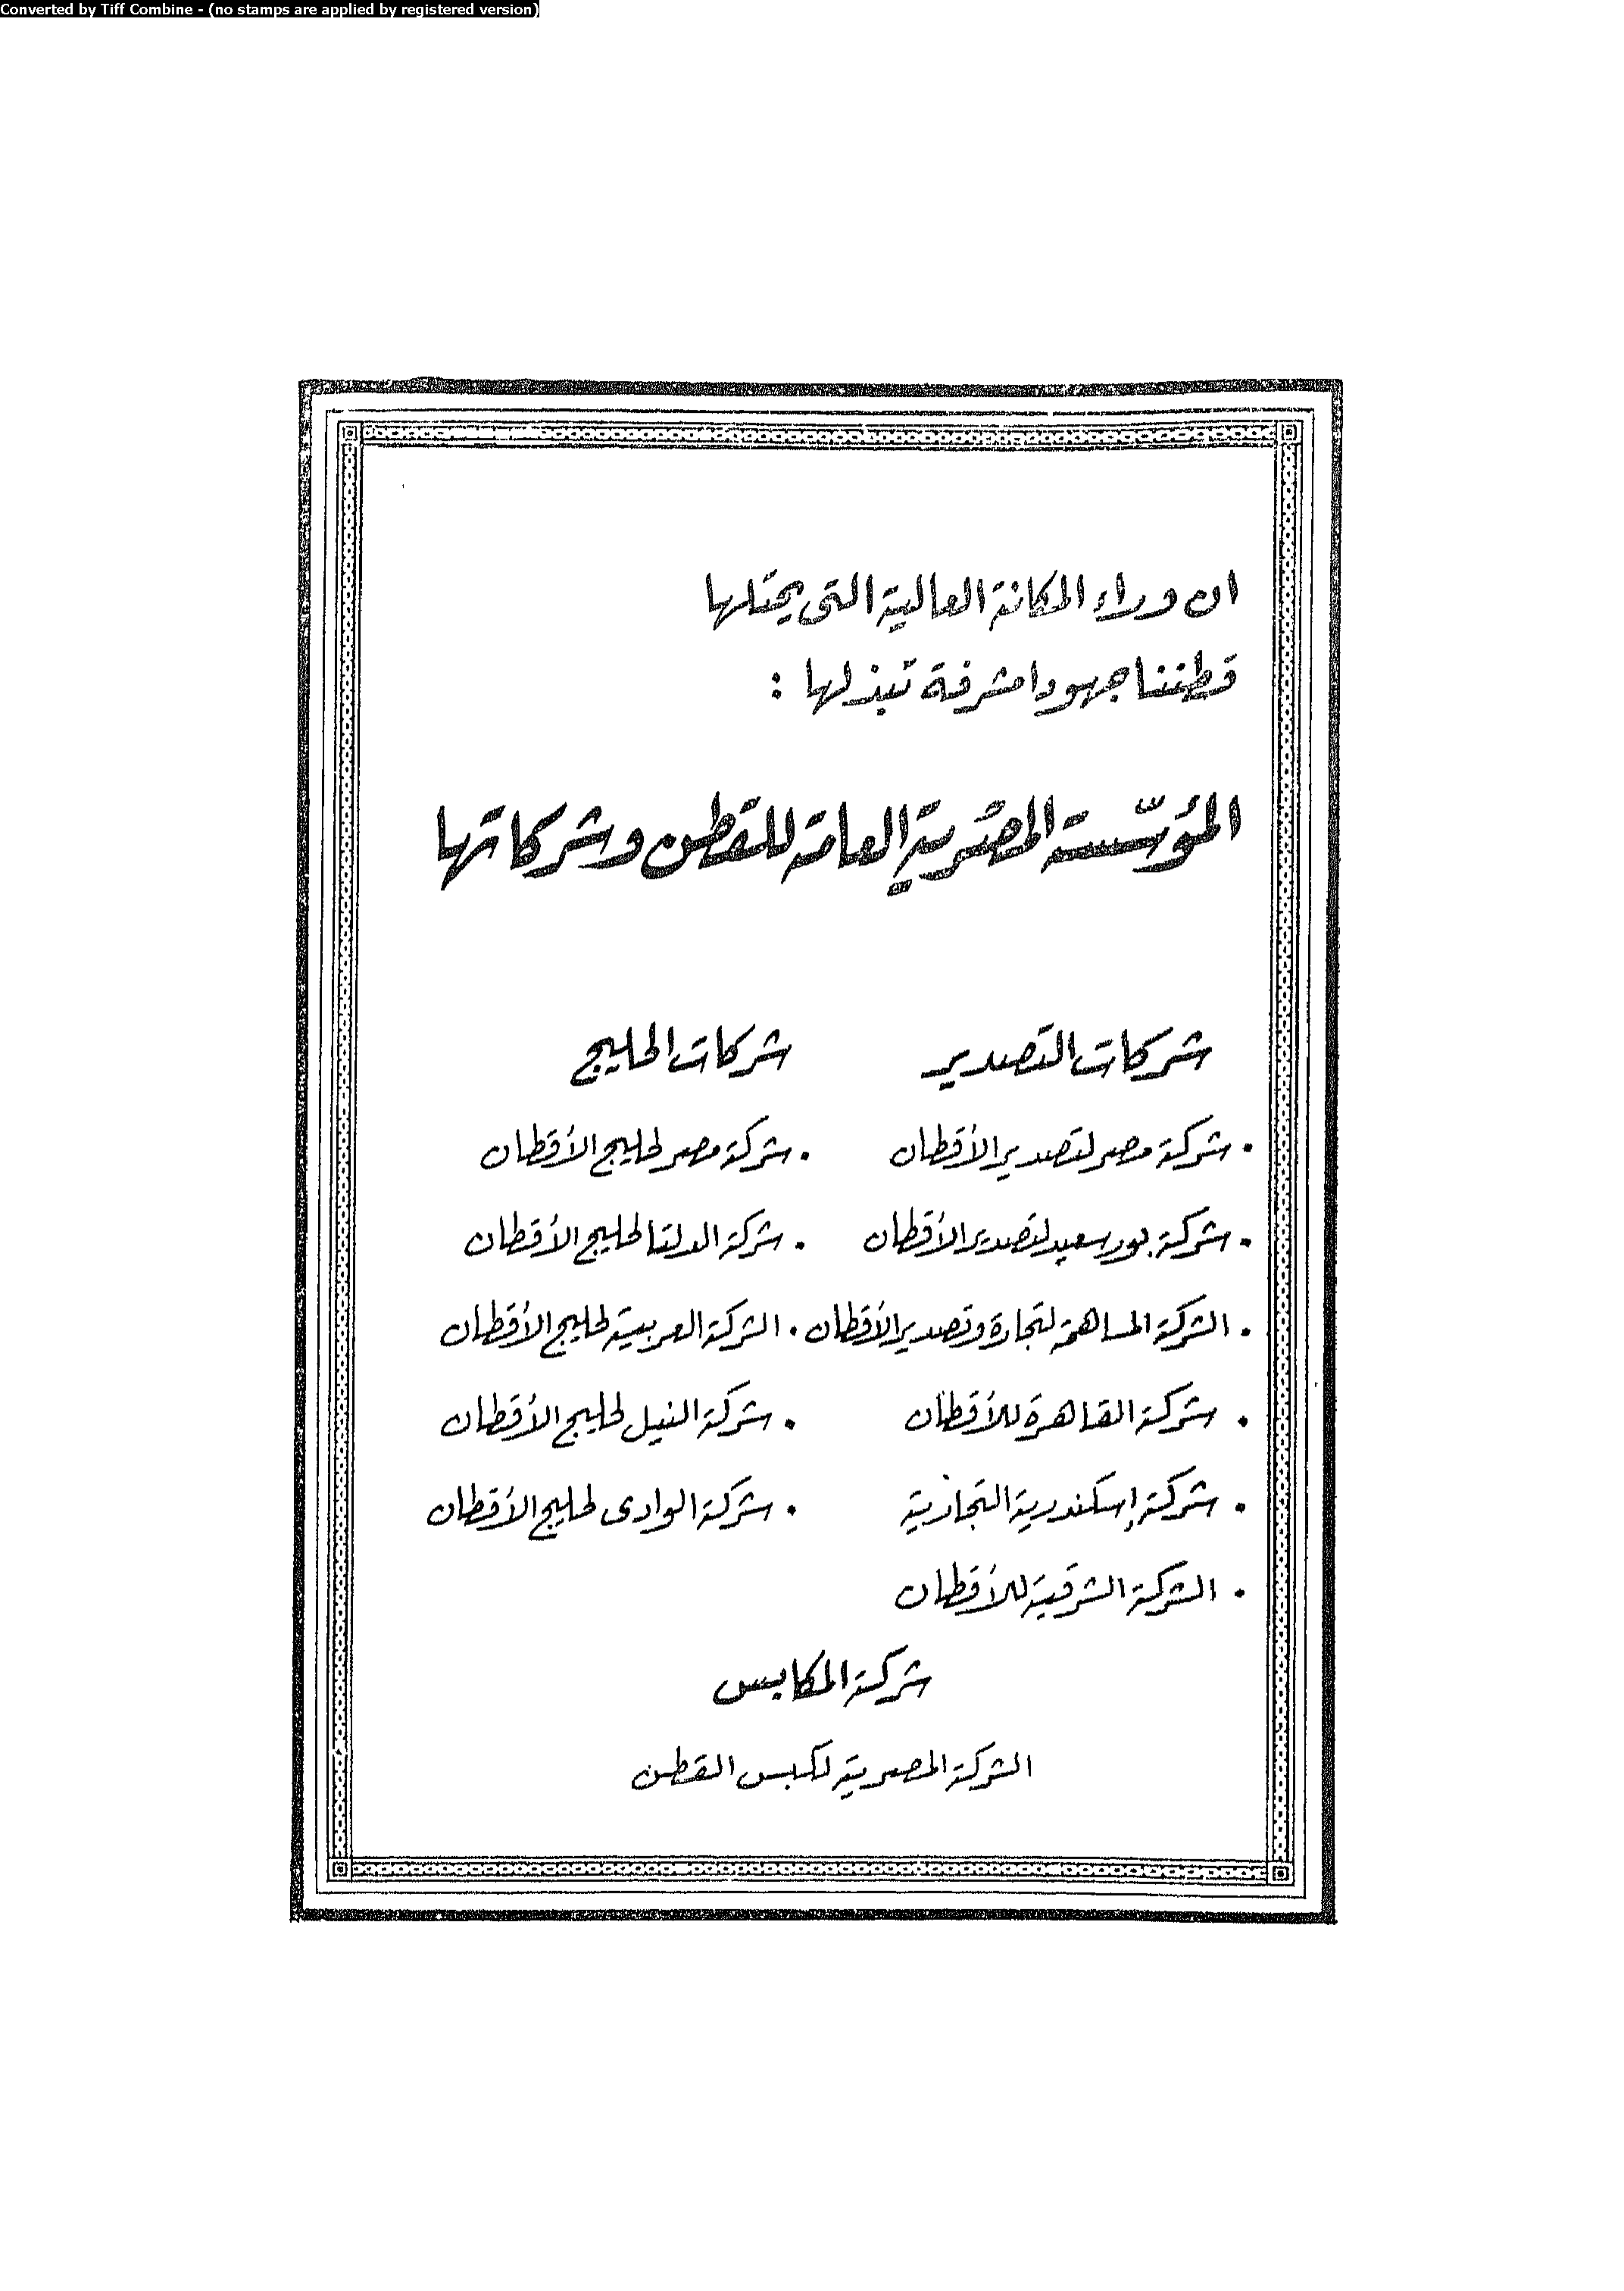 Converted by Tiff Combine - (no stamps are applied by registered version)
ان وراء المكانة العالية التى يحتلها
قطننا جهودا مشرفة تبذلها :
المؤسّسة المصرية العامة للقطن وشركاتها
شركات التصدير
• شركة مصر لتصدير الأقطان
• شركة بور سعيد لتصدير الأقطان
• الشركة المساهمة لتجارة وتصدير الأقطان
• شركة القاهرة للأقطان
• شركة إسكندرية التجارية
• الشركة الشرقية للأقطان
شركات الحليج
• شركة مصر لحليج الأقطان
• شركة الدلتا لحليج الأقطان
• الشركة العربية لحليج الأقطان
• شركة النيل لحليج الأقطان
• شركة الوادى لحليج الأقطان
شركة المكابس
الشركة المصرية لكبس القطن